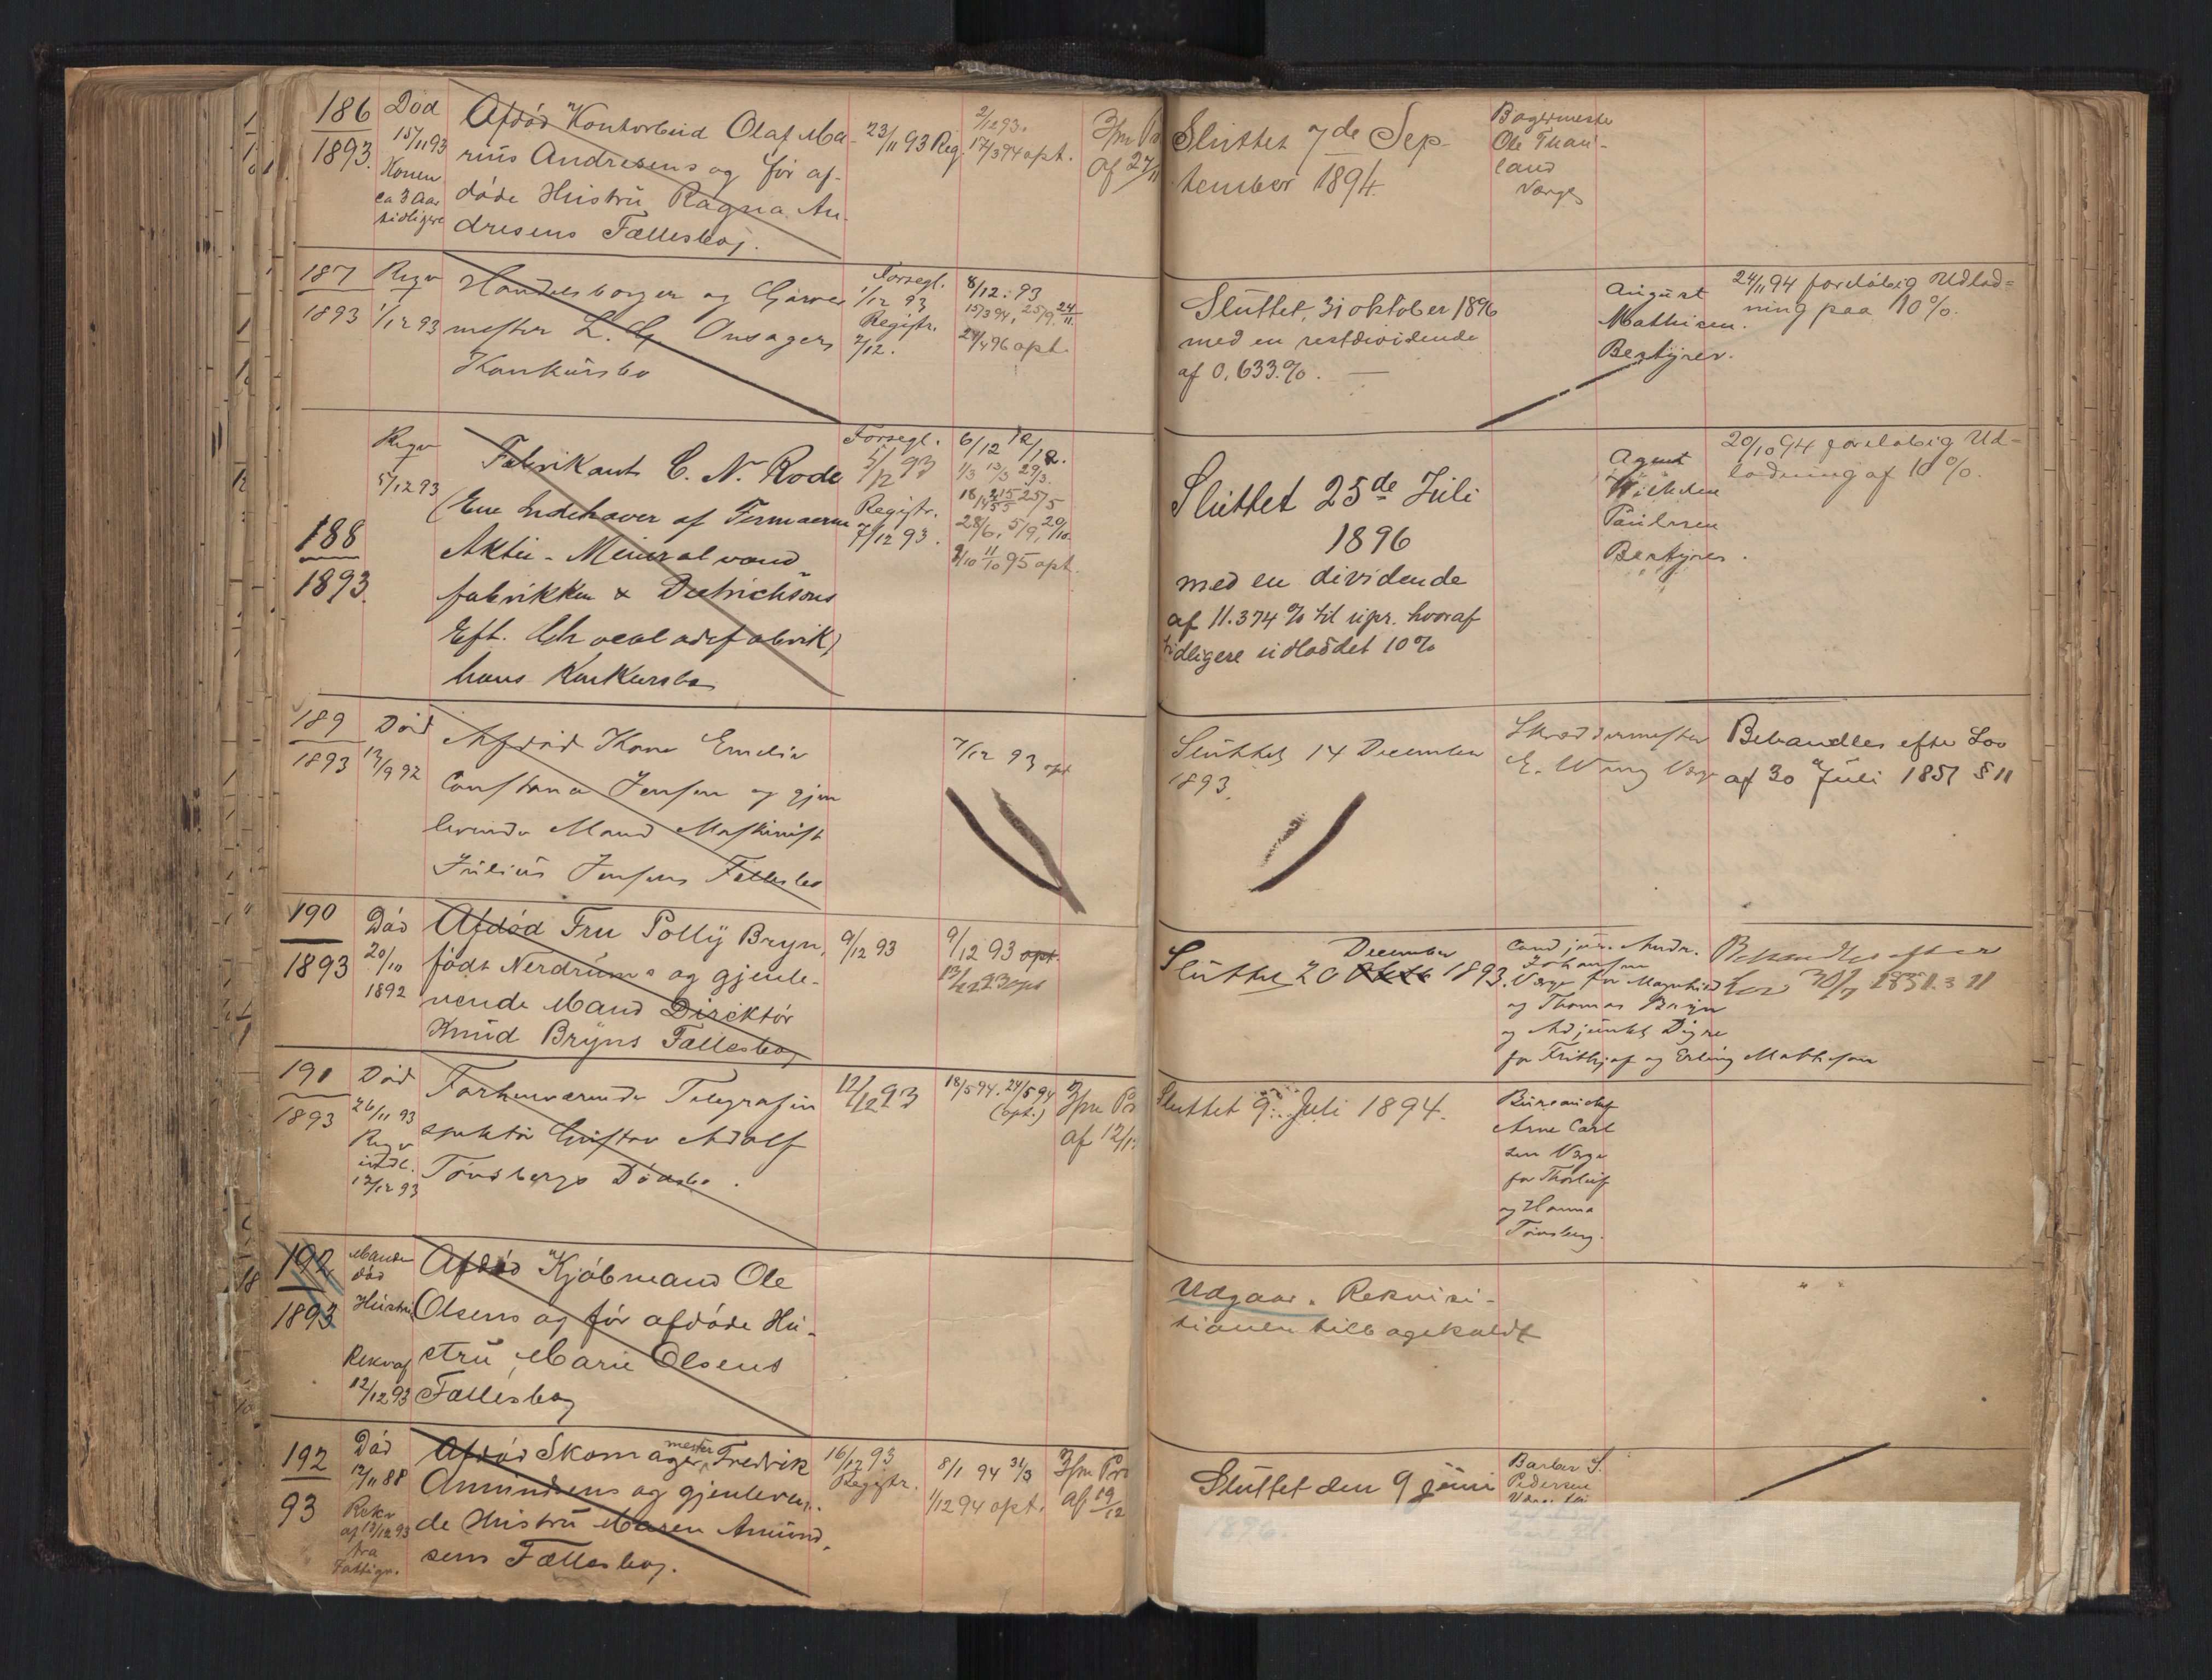 186
1893.
Død
15/11 93
Konen
ca 3 Aar
tidligere
Afdød Kontorbud Olaf Ma-
rius Andresens og før af-
døde Hustru Ragna An-
dresens Fællesbo.
23/11 93 Reg.
2/12 93.
17/3 94 opt.
3/m Pr
af 27/11
Sluttet 7de Sep-
tember 1894.
Bagermester
Ole
land
Værge
187
1893
Reqv
1/12 93
Handelsborger og Garver
mester L. G. Onsagers
Konkursbo
Forsegl.
1/12 93
Registr.
2/12.
8/12 93
15/3 94, 25/9, 24/11
24/4 96 opt.
Sluttet, 31 oktober 1896
med en restdividende
af 0,633.%.
August
Mathisen.
Bestyrer.
24/11 94 foreløbig Udlod=
ning paa 10%.
188
1893.
Reqv
5/12 93
Fabrikant C. N. Rode
(Ene Indehaver af Firmaerne
Aktie-Mineralvand
fabrikken & Dietrichsons
Eft. Chocoladefabrik)
hans Konkursbo
Forsegl.
5/12 93
Registr.
7/12 93.
6/12 12/12.
1/3 13/3 29/3.
28/6, 5/9, 20/10.
11/10 95 opt.
Sluttet 25de Juli
1896
med en dividende
af 11.374 % til upr. hvoraf
tidligere udloddet 10%
Agent
Wilhelm
Paulsen
Bestyrer.
20/10 94 foreløbig Ud=
lodning af 10%.
189
1893
Død
13/9 92
Afdød Kone Emelie
Constance Jensen og gjen
levende Mand Maskinist
Julius Jensens Fællesbo
7/12 93 opt
Sluttet 14 December
1893.
Skræddermester
E. Wang Værge
Behandles efter Lov
af 30 Juli 1851 § 11
190
1893
Død
20/10
1892
Afdød Fru Polly Bryn,
født Nerdrums og gjenle-
vende Mand Direktør
Knud Bryns Fællesbo
9/12 93
9/12 93 opt.
13/12 93 opt
December
Sluttet 20 1893.
Cand jur. Andr.
Johansen
Værge for Magnhild
og Thomas Bryn
og Adjunkt Digre
for Frithjof og Erling Mathisen
Behandles efter
Lov 30/7 1851 § 11
191
1893
Død
26/11 93
Reqv
indl.
12/12 93
Forhenværende Telegrafin
spektør Gustav Adolf
Tønsbergs Dødsbo.
12/12 93
18/5 94. 24/5 94
(opt.)
3/m Pr
af 12/12
Sluttet 9. Juli 1894.
Bureauchef
Arne Carl
sen Værge
for Thorleif
og Hanna
Tønsberg.
192
1893
Manden
død
Hustru
Rekv af
12/12 93
Afdød Kjøbmand Ole
Olsens og før afdøde Hu-
stru Marie Olsens
Fællesbo
Udgaar. Rekvisi-
tionen tilbagekaldt
192
93
Død
12/11 88
Rekv
af 13/12 93
fra
Fattigv.
mester
Afdød Skomager, Fredrik
Amundsens og gjenleven-
de Hustru Maren Amund-
sens Fællesbo.
16/12 93
Registr.
8/1 94 31/3
1/12 94 opt.
3/m Pro
af 19/12
Sluttet den 9 juni
1896.
Barber S.
Pedersen